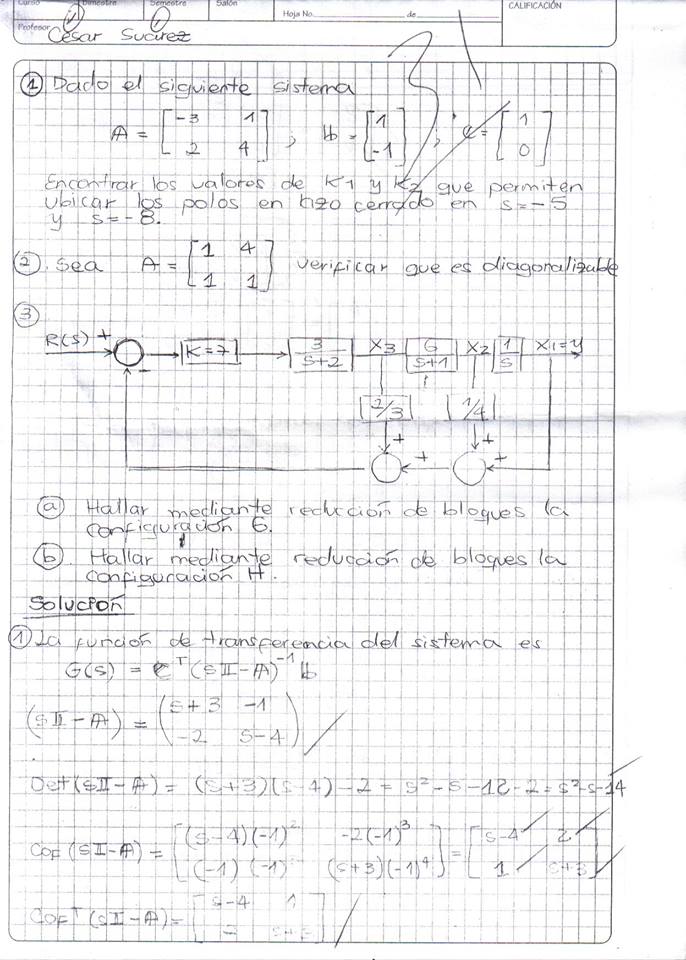 Curso Bimestre Semestre Salón
Hoja No. de
CALIFICACIÓN
Profesor
César Suárez
① Dado el siguiente sistema
A = [-3 1; 2 4] ; b = [1; -1] ; c = [1; 0]
Encontrar los valores de K1 y K2 que permiten
ubicar los polos en lazo cerrado en s=-5
y s=-8.
② Sea A = [1 4; 1 1] verificar que es diagonalizable
③
R(s) + - K=7 3/(s+2) X3 6/(s+1) X2 1/s X1=y
2/3 1/4
+ +
+ +
ⓐ Hallar mediante reducción de bloques la
configuración G.
ⓑ Hallar mediante reducción de bloques la
configuración H.
Solución
① La función de transferencia del sistema es
G(s) = c^T (sI-A)^-1 b
(sI-A) = (s+3 -1; -2 s-4)
Det (sI-A) = (s+3)(s-4) -2 = s²-s-12-2 = s²-s-14
Cof (sI-A) = [(s-4)(-1)² -2(-1)³; (-1)(-1) (s+3)(-1)⁴] = [s-4 2; 1 s+3]
Cof^T (sI-A) = [s-4 1; 2 s+3]